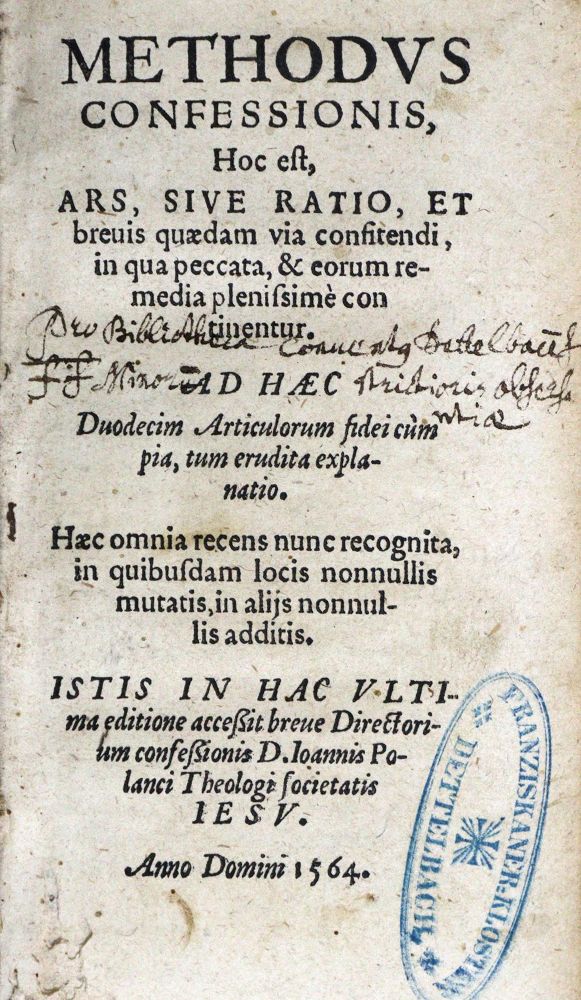 METHODVS
CONFESSIONIS,
Hoc eſt,
ARS, SIVE RATIO, ET
breuis quædam via confitendi,
in qua peccata, & eorum re-
media pleniſsimè con
tinentur.
Pro Bibliotheca Conventus Dettelbacẽs
ff Minorũ strictioris observa
ntiæ
AD HÆC
Duodecim Articulorum fidei cùm
pia, tum erudita expla-
natio.
Hæc omnia recens nunc recognita,
in quibuſdam locis nonnullis
mutatis, in alijs nonnul-
lis additis.
ISTIS IN HAC VLTI-
ma editione acceſsit breue Directori-
um confeſsionis D. Ioannis Po-
lanci Theologi ſocietatis
IESV.
Anno Domini 1564.
FRANZISKANER-KLOSTER
DETTELBACH.